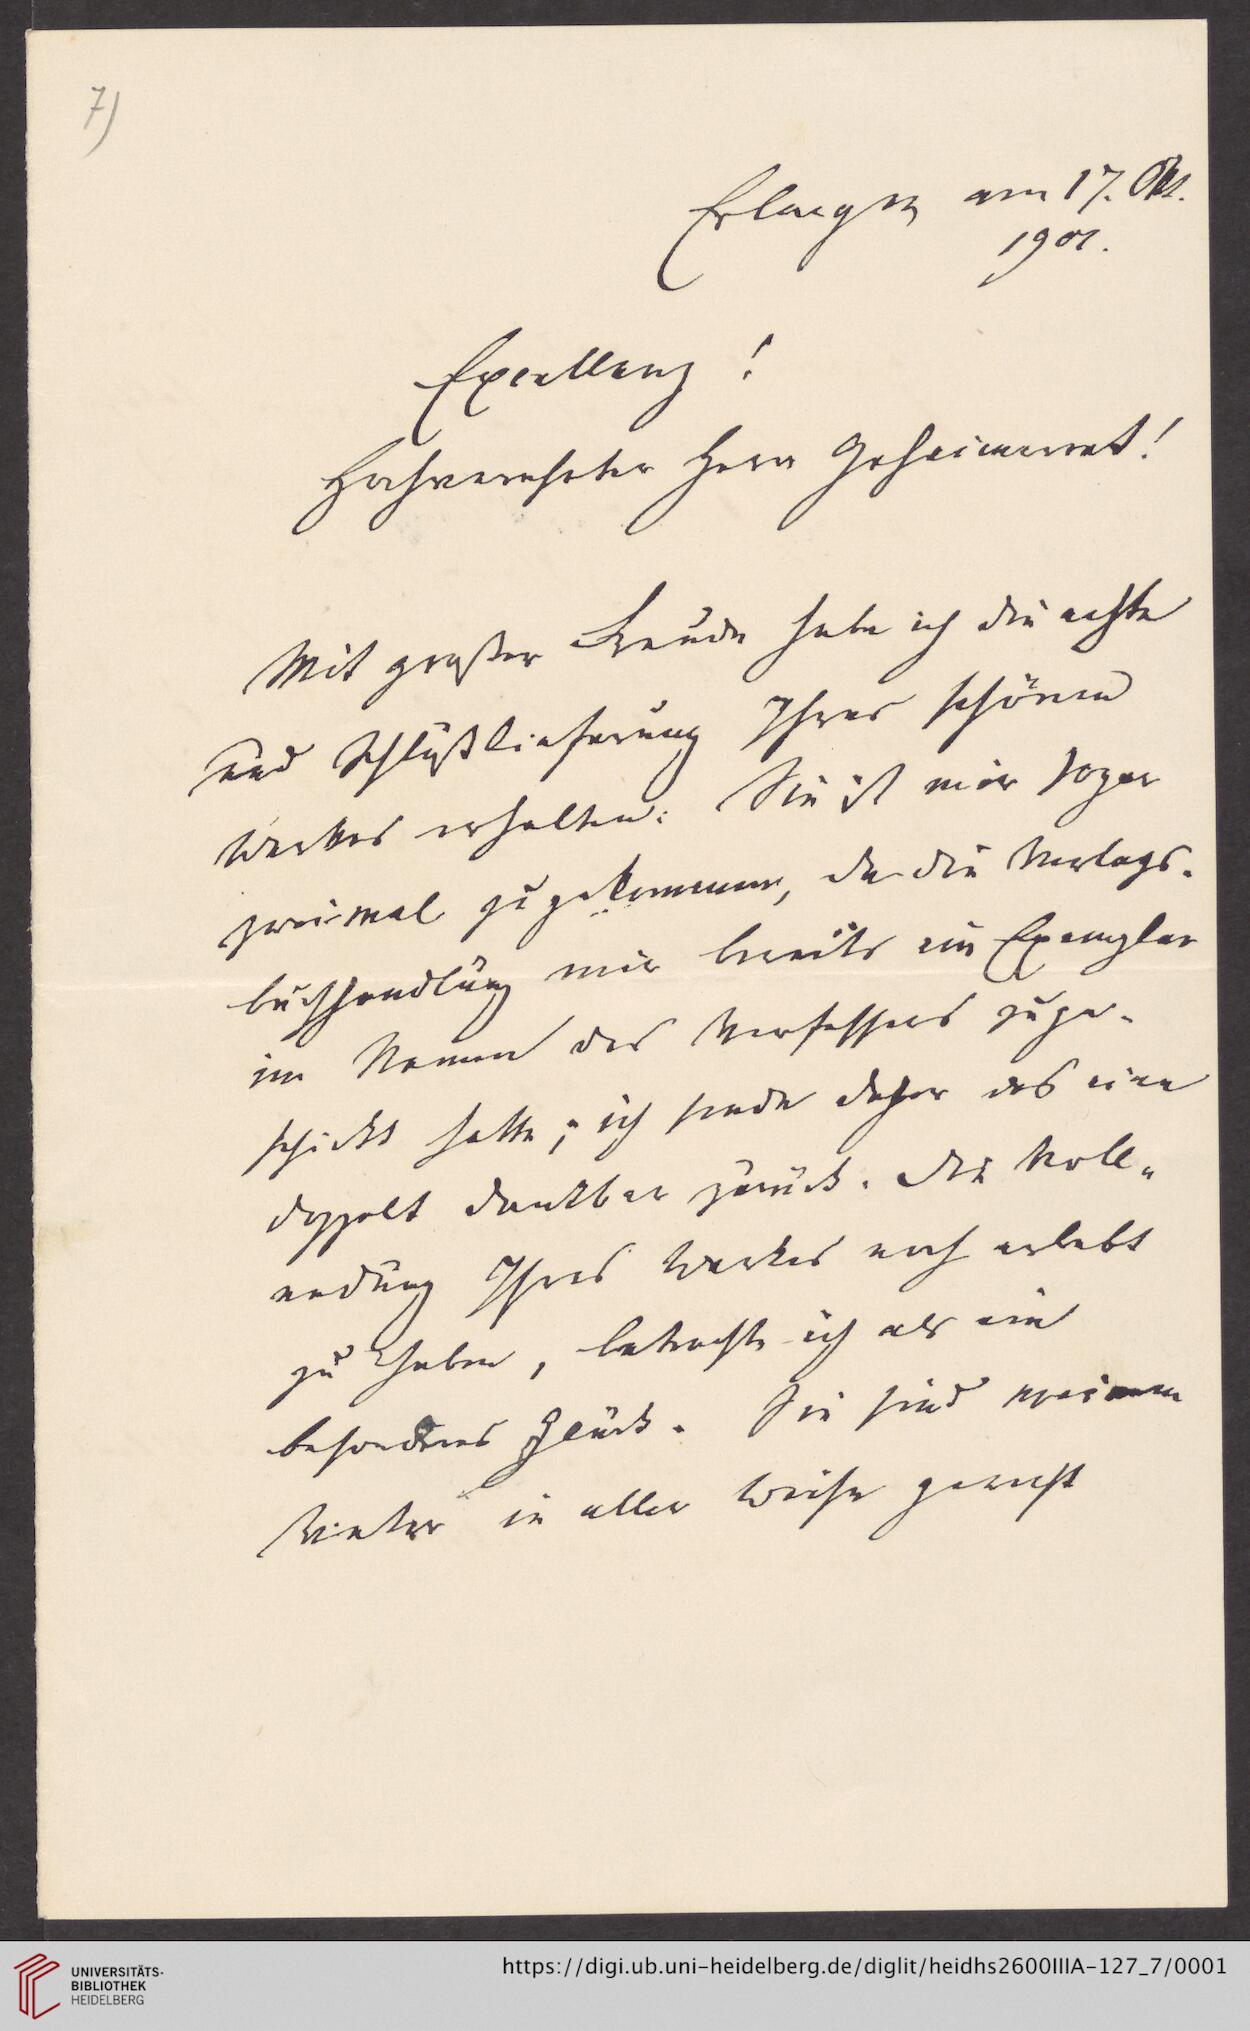 7)
Erlangen am 17. Okt.
1901.
Excellenz!
Hochverehrter Herr Geheimerat!
Mit großer Freude habe ich die achte
und Schlußlieferung Ihres schönen
Werkes erhalten. Sie ist mir sogar
zweimal zugekommen, da die Verlags-
buchhandlung mir bereits ein Exemplar
im Namen des Verfassers zuge-
schickt hatte; ich sende daher das eine
doppelt dankbar zurück. Die Voll-
endung Ihres Werkes noch erlebt
zu haben, betrachte ich als ein
besonderes Glück. Sie sind meinem
Vater in aller Weise gerecht
UNIVERSITÄTS-
BIBLIOTHEK
HEIDELBERG
https://digi.ub.uni-heidelberg.de/diglit/heidhs2600IIIA-127_7/0001